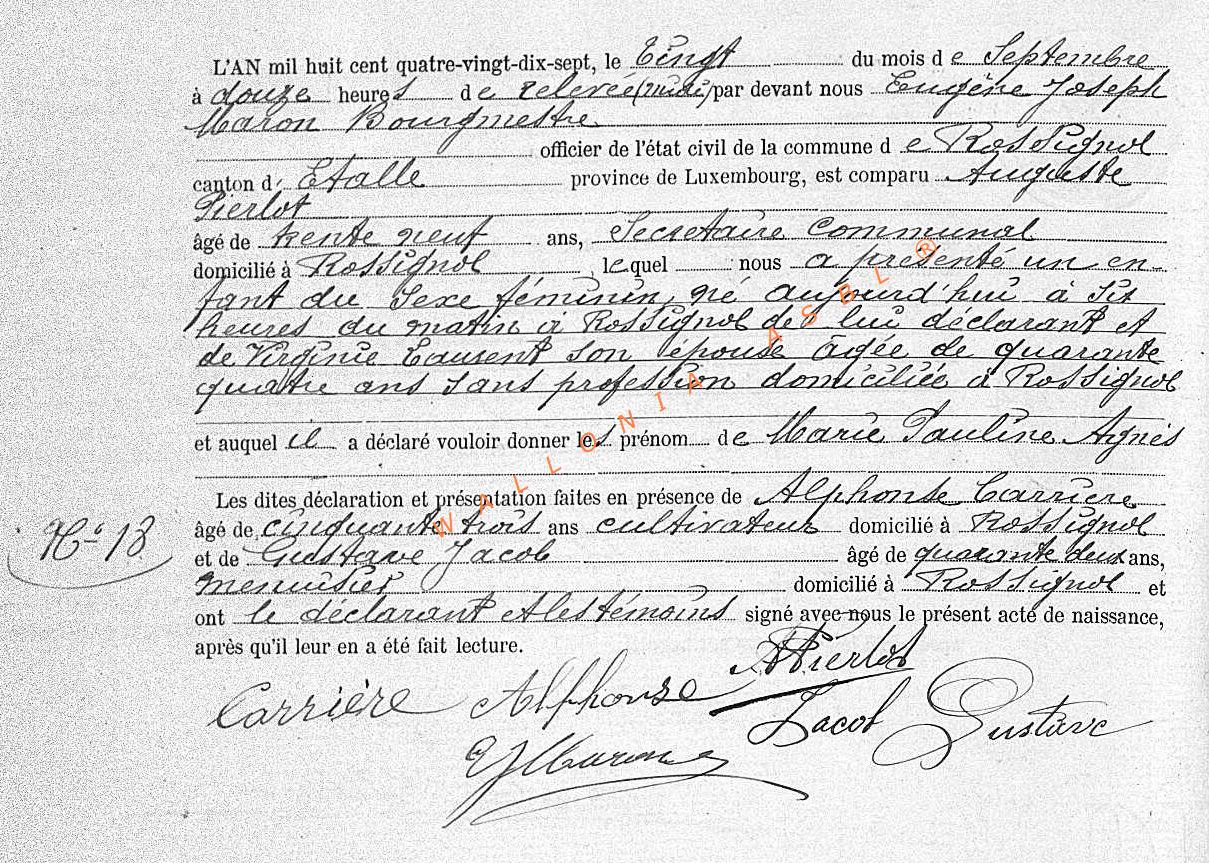 L'AN mil huit cent quatre-vingt-dix-sept, le Vingt du mois de Septembre
à douze heures de relevée (midi) par devant nous Eugène Joseph
Maron Bourgmestre
officier de l'état civil de la commune de Rossignol
canton d' Etalle province de Luxembourg, est comparu Auguste
Pierlot
âgé de trente neuf ans, Secretaire Communal
domicilié à Rossignol, lequel nous a présenté un en-
fant du Sexe féminin, né aujourd'hui à Six
heures du matin à Rossignol de lui déclarant et
de Virginie Lausent son épouse agée de quarante
quatre ans sans profession domiciliée à Rossignol
et auquel il a déclaré vouloir donner les prénom de Marie Pauline Agnès
Les dites déclaration et présentation faites en présence de Alphonse Carrière
âgé de cinquante trois ans cultivateur domicilié à Rossignol
N° 13
et de Gustave Jacob âgé de quarante deux ans,
menuisier domicilié à Rossignol et
ont le déclarant et les témoins signé avec nous le présent acte de naissance,
après qu'il leur en a été fait lecture.
APierlot
Carrière Alphonse
Jacob Gustave
EJMaron
WALLONIA ASBL ®